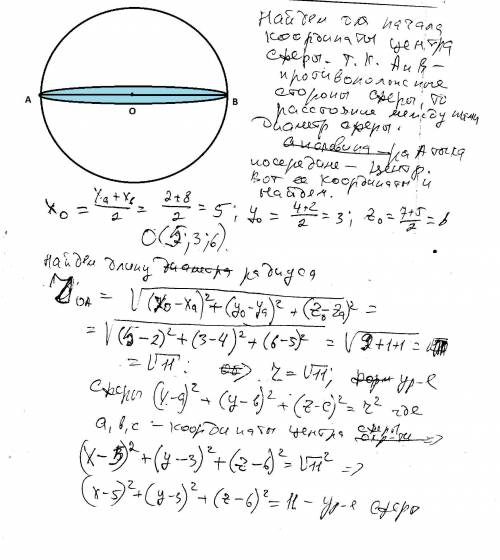 Найдем для начала
координаты центра
сферы. Т.к. А и В –
противоположные
стороны сферы, то
расстояние между ними
диаметр сферы.
а половина – ра А точка
посередине – центр.
Вот ее координаты и
найдем.
A B
O
x₀ = (xₐ + xᵦ)/2 = (2+8)/2 = 5; y₀ = (4+2)/2 = 3; z₀ = (7+5)/2 = 6
O(5; 3; 6).
Найдем длину диаметра радиуса
OA = √((x₀–xₐ)²+(y₀–yₐ)²+(z₀–zₐ)²) =
= √((5–2)²+(3–4)²+(6–5)²) = √(9+1+1) =
= √11. r = √11; ур-е
сферы (x–a)²+(y–b)²+(z–c)² = r² где
a, b, c – координаты центра сферы =>
(x–5)²+(y–3)²+(z–6)² = √11² =>
(x–5)²+(y–3)²+(z–6)² = 11 – ур-е сферы